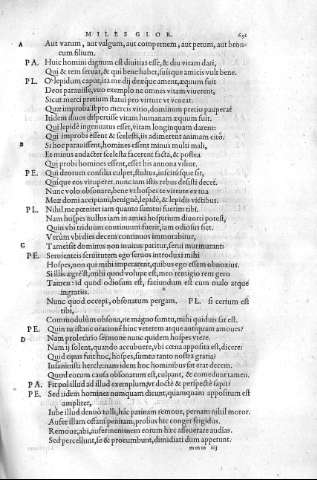 MILES GLOR. 691
A Aut varum, aut valgum, aut compernem, aut petum, aut broncum filium.
PA. Huic homini dignum est diuitias esse, & diu vitam dari,
Qui & rem seruat, & qui bene habet, suisque amicis vult bene.
PL. O lepidum caput, ita me dij deæque ament, æquum fuit
Deos parauisse, vno exemplo ne omnes vitam viuerent,
Sicut merci pretium statui pro virtute vt veneat.
Quæ improba est pro mercis vitio, dominum precio pauperat
Itidem diuos dispertisse vitam humanam æquum fuit.
Qui lepidè ingeniatus esset, vitam longinquam darent:
Qui improbi essent & scelesti, iis adimerent animam citò.
B Si hoc parauissent, homines essent minus multi mali,
Et minus audacter scelesta facerent facta, & postea
Qui probi homines essent, esset his annona vilior.
PE. Qui deorum consilia culpet, stultus, inscitusque sit,
Quique eos vituperet. nunc iam istis rebus desisti decet.
Nunc volo obsonare, bene vt hospes te vtente ex tua
Meæ domi accipiam, benignè, lepidè, & lepidis victibus.
PL. Nihil me pœnitet iam quanto sumtui fuerim tibi.
Nam hospes nullus tam in amici hospitium diuorti potest,
Quin vbi triduum continuum fuerit, iam odiosus siet.
Verùm vbi dies decem continuos immorabitur,
C Tametsi dominus non inuitus patitur, serui murmurant.
PE. Seruientes seruitutem ego seruos introduxi mihi
Hospes, non qui mihi imperarent, quibusve ego essem obnoxius.
Si illis ægrè est, mihi quod volupe est, meo remigio rem gero
Tamen id quod odiosum est, faciundum est cum malo atque
ingratiis.
Nunc quod occepi, obsonatum pergam. PL. si certum est
tibi,
Commodulùm obsona, ne magno sumtu, mihi quiduis sat est.
PE. Quin tu istanc orationē hinc veterem atque antiquam amoues?
D Nam proletario sermone nunc quidem hospes vtere.
Nam ij solent, quando accubuere, vbi cena apposita est, dicere:
Quid opus fuit hoc, hospes, sumtu tanto nostra gratia?
Insaniuisti hercle: nam idem hoc hominibus sat erat decem.
Quod eorum causa obsonatum est, culpant, & comedunt tamen.
PA. Fit pol illud ad illud exemplum, vt doctè & perspectè sapit!
PE. Sed iidem homines nomquam dicunt, quamquam appositum est
ampliter,
Iube illud demi: tolle hāc patinam: remoue, pernam: nihil moror.
Aufer illam offam penitam, probus hic conger frigidus.
Remoue, abi, aufer: neminem eorum hæc asseuerare audias.
Sed percellunt, se & procumbunt, dimidiati dum appetunt.
mmm iij